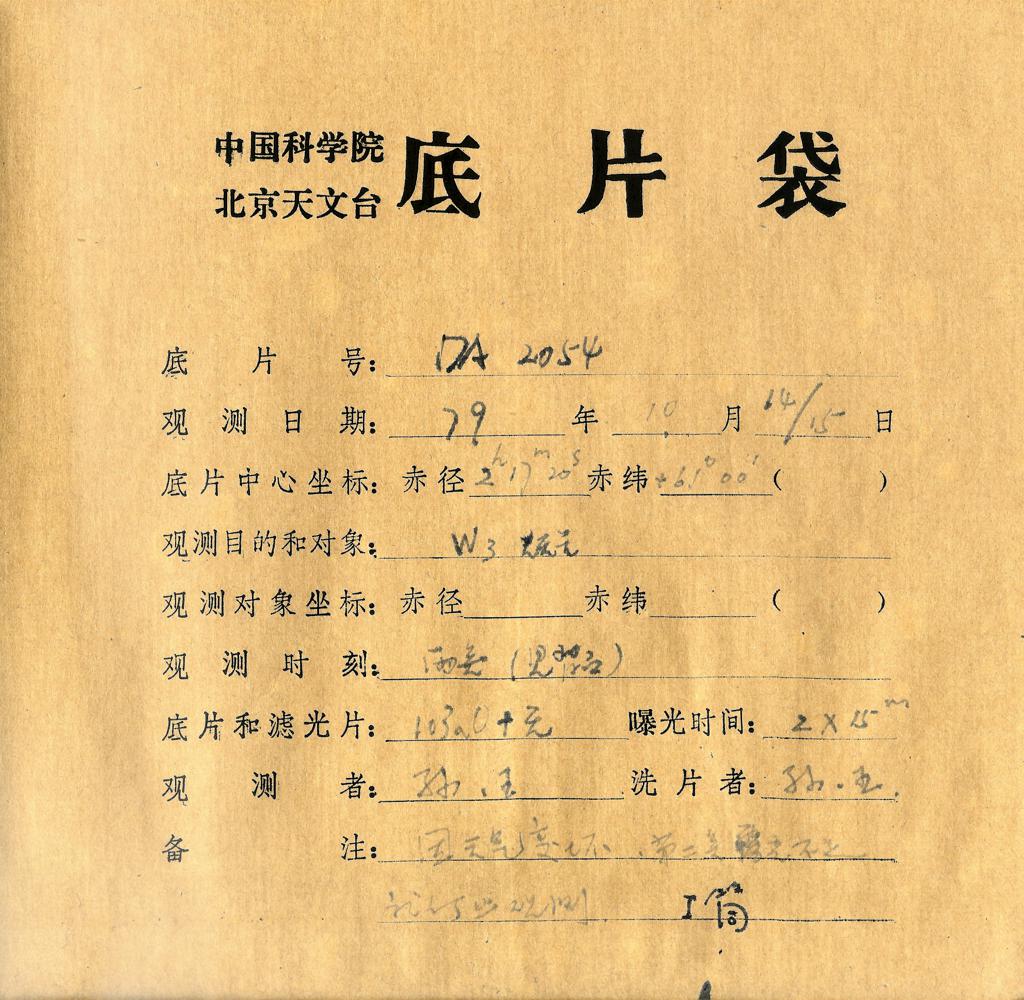 中国科学院
北京天文台
底片袋
底片号: DA 2054
观测日期: 79年10月14/15日
底片中心坐标: 赤径2h17m20s赤纬+61°00'( )
观测目的和对象: W3
观测对象坐标: 赤径 赤纬 ( )
观测时刻: 两类(见背后)
底片和滤光片: 103aO+无 曝光时间: 2×15m
观测者: 孙.王 洗片者: 孙.王.
备注: 因天气变坏,第二类曝光不足.
观测. I筒